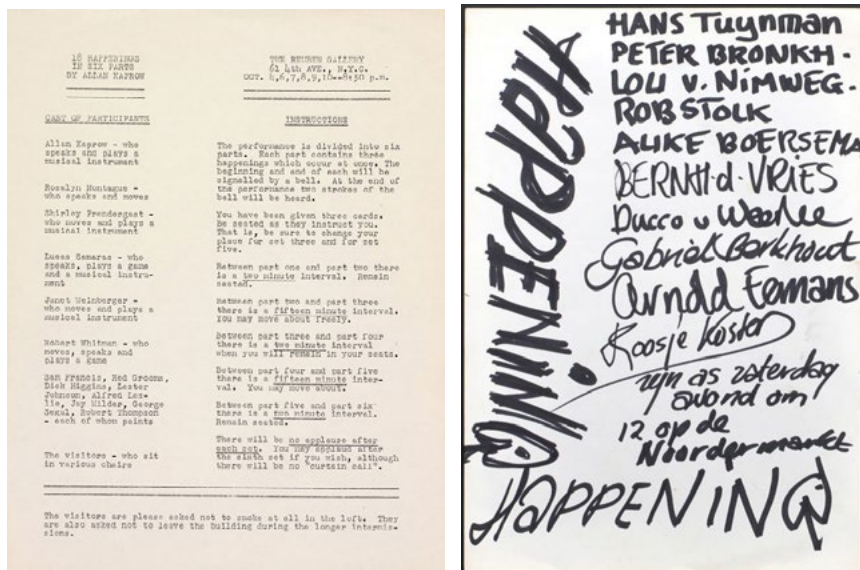 18 HAPPENINGS
IN SIX PARTS
BY ALLAN KAPROW
THE REUBEN GALLERY
61 4th AVE., N.Y.C.
OCT. 4,6,7,8,9,10--8:30 p.m.
CAST OF PARTICIPANTS
Allan Kaprow - who
speaks and plays a
musical instrument
Rosalyn Montague -
who speaks and moves
Shirley Prendergast -
who moves and plays a
musical instrument
Lucas Samaras - who
speaks, plays a game
and a musical instru-
ment
Janet Weinberger -
who moves and plays a
musical instrument
Robert Whitman - who
moves, speaks and
plays a game
Sam Francis, Red Grooms,
Dick Higgins, Lester
Johnson, Alfred Les-
lie, Jay Milder, George
Segal, Robert Thompson
- each of whom paints
The visitors - who sit
in various chairs
INSTRUCTIONS
The performance is divided into six
parts. Each part contains three
happenings which occur at once. The
beginning and end of each will be
signalled by a bell. At the end of
the performance two strokes of the
bell will be heard.
You have been given three cards.
Be seated as they instruct you.
That is, be sure to change your
place for set three and for set
five.
Between part one and part two there
is a two minute interval. Remain
seated.
Between part two and part three
there is a fifteen minute interval.
You may move about freely.
Between part three and part four
there is a two minute interval
when you will remain in your seats.
Between part four and part five
there is a fifteen minute inter-
val. You may move about.
Between part five and part six
there is a two minute interval.
Remain seated.
There will be no applause after
each set. You may applaud after
the sixth set if you wish, although
there will be no "curtain call".
The visitors are please asked not to smoke at all in the loft. They
are also asked not to leave the building during the longer intermis-
sions.
HAPPENING
HANS Tuynman
PETER BRONKH.
LOU v. NIMWEG.
ROB STOLK
ALIKE BOERSEMA
BERNH.d.VRIES
Ducco v Weerlee
Gabriel Berkhout
Arnold Eemans
Roosje Koster
zijn as zaterdag
avond om
12 op de
Noordermarkt
HAPPENING